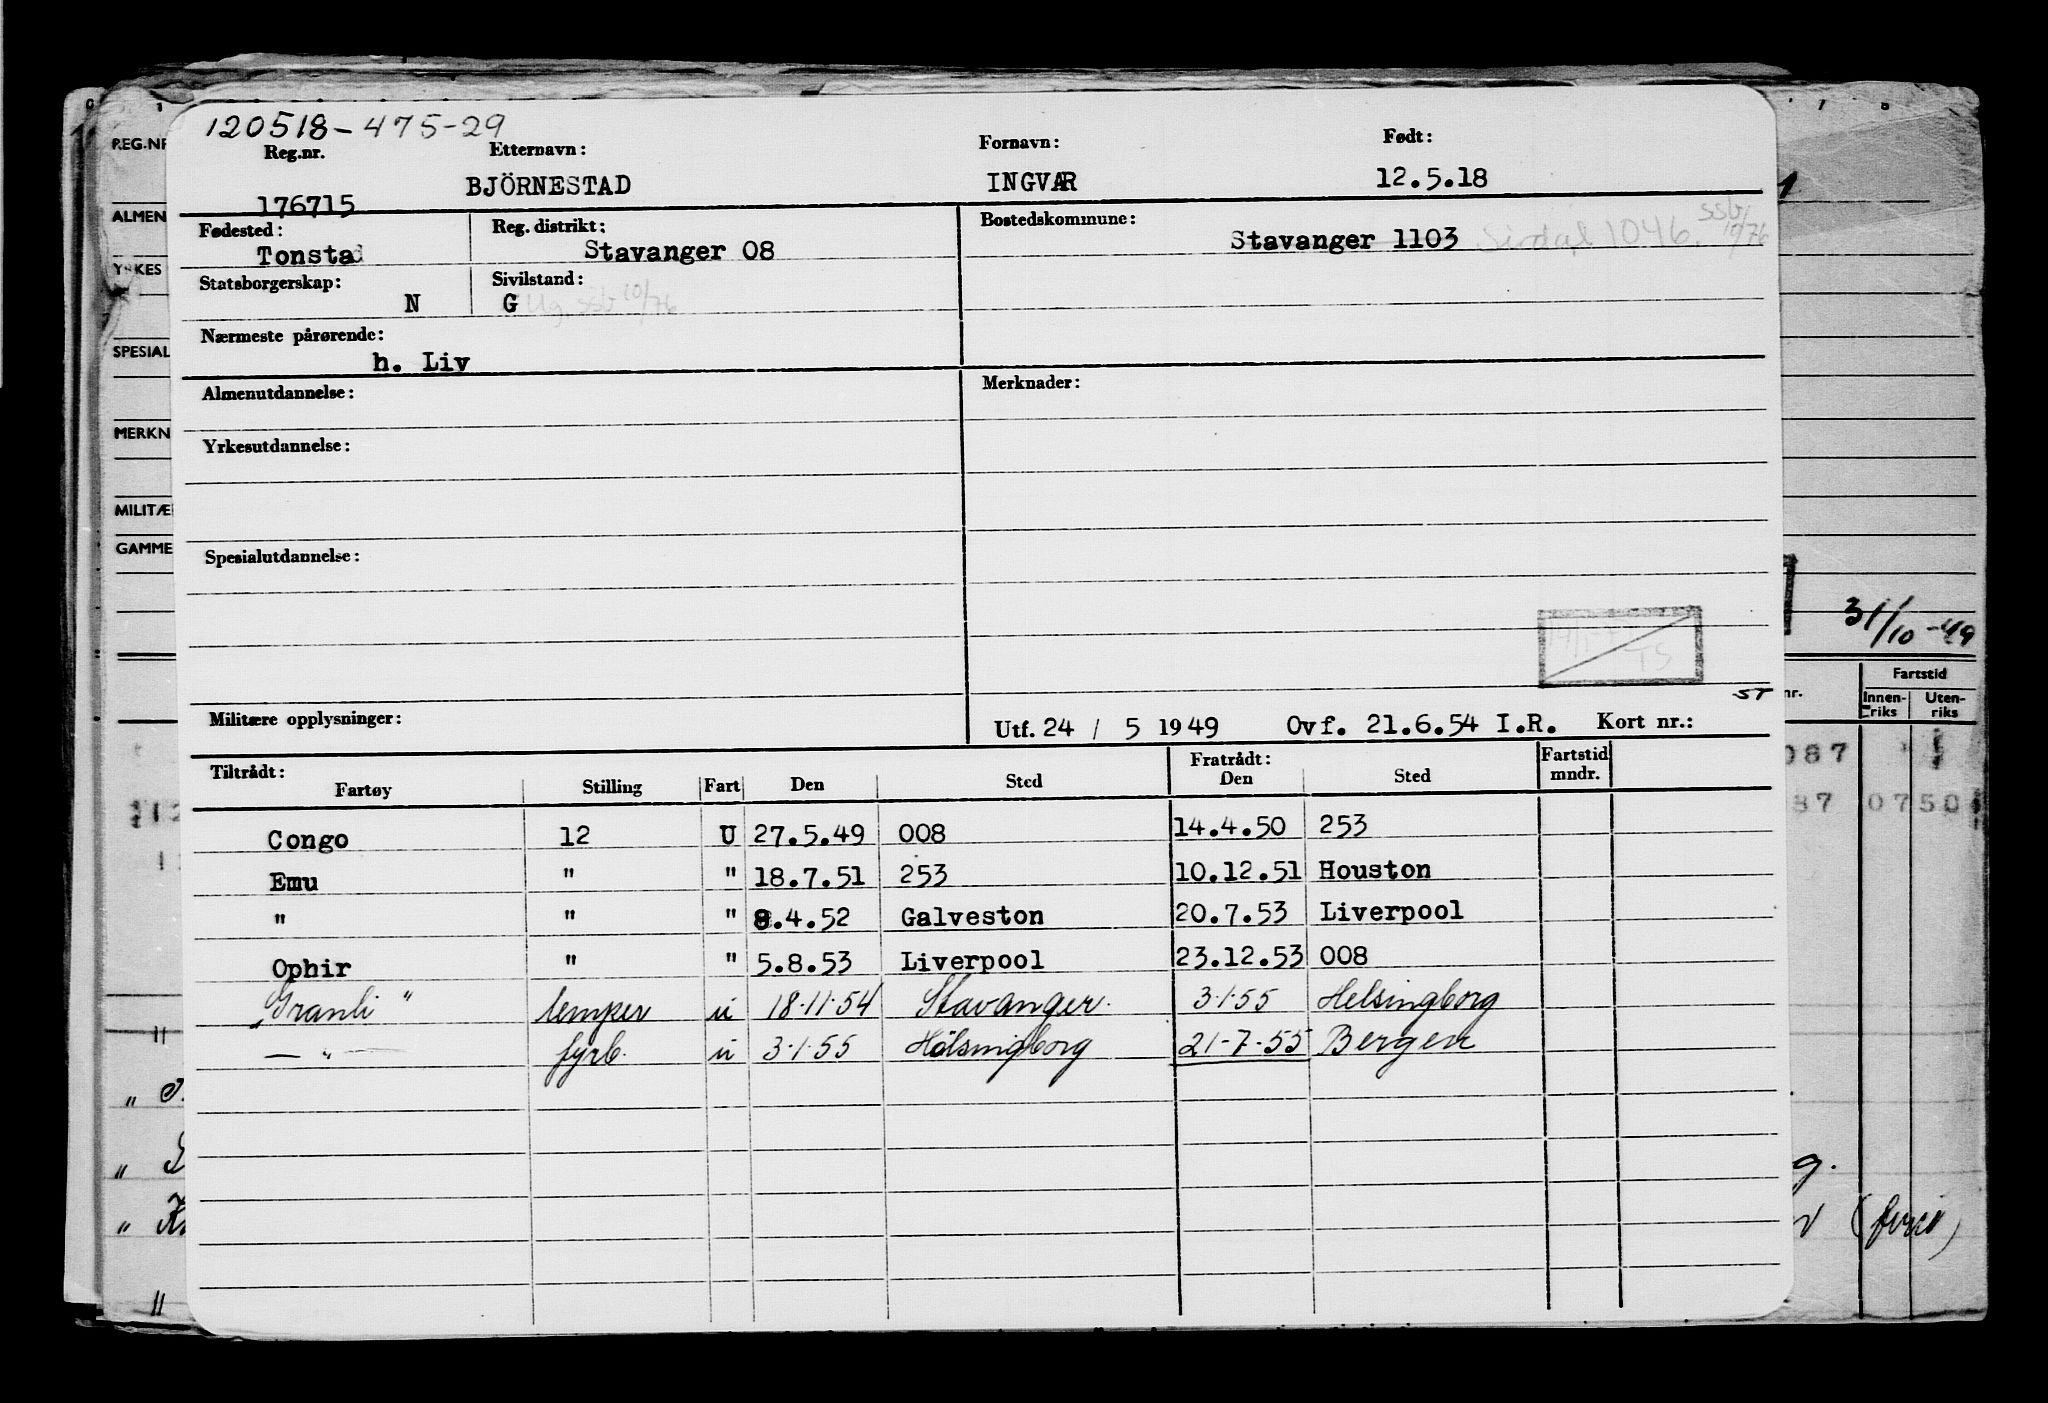 120518-475-29
Reg.nr. Etternavn: Fornavn: Født:
176715 BJÖRNESTAD INGVAR 12.5.18
Fødested: Reg. distrikt: Bostedskommune:
Tonstad Stavanger 08 Stavanger 1103 Sirdal 1046. SSB 10/76
Statsborgerskap: Sivilstand:
N G Ug. SSB 10/76
Nærmeste pårørende:
h. Liv
Almenutdannelse: Merknader:
Yrkesutdannelse:
Spesialutdannelse:
TS
ST
Militære opplysninger: Utf. 24 / 5 1949 Ovf. 21.6.54 I.R. Kort nr.:
Tiltrådt: Fratrådt: Fartstid
Fartøy Stilling Fart Den Sted Den Sted mndr.
Congo 12 U 27.5.49 008 14.4.50 253
Emu " " 18.7.51 253 10.12.51 Houston
" " " 8.4.52 Galveston 20.7.53 Liverpool
Ophir " " 5.8.53 Liverpool 23.12.53 008
"Granli" lemper u 18.11.54 Stavanger. 3.1.55 Helsingborg
— " — fyrb. u 3.1.55 Hälsingborg 21-7-55 Bergen
REG.NR
ALMEN
YRKES
SPESIAL
MERKN
MILITÆ
GAMME
31/10-49
Fartstid
nr. Innen-riks Uten-riks
087
87 07 50
g.
(ferie)